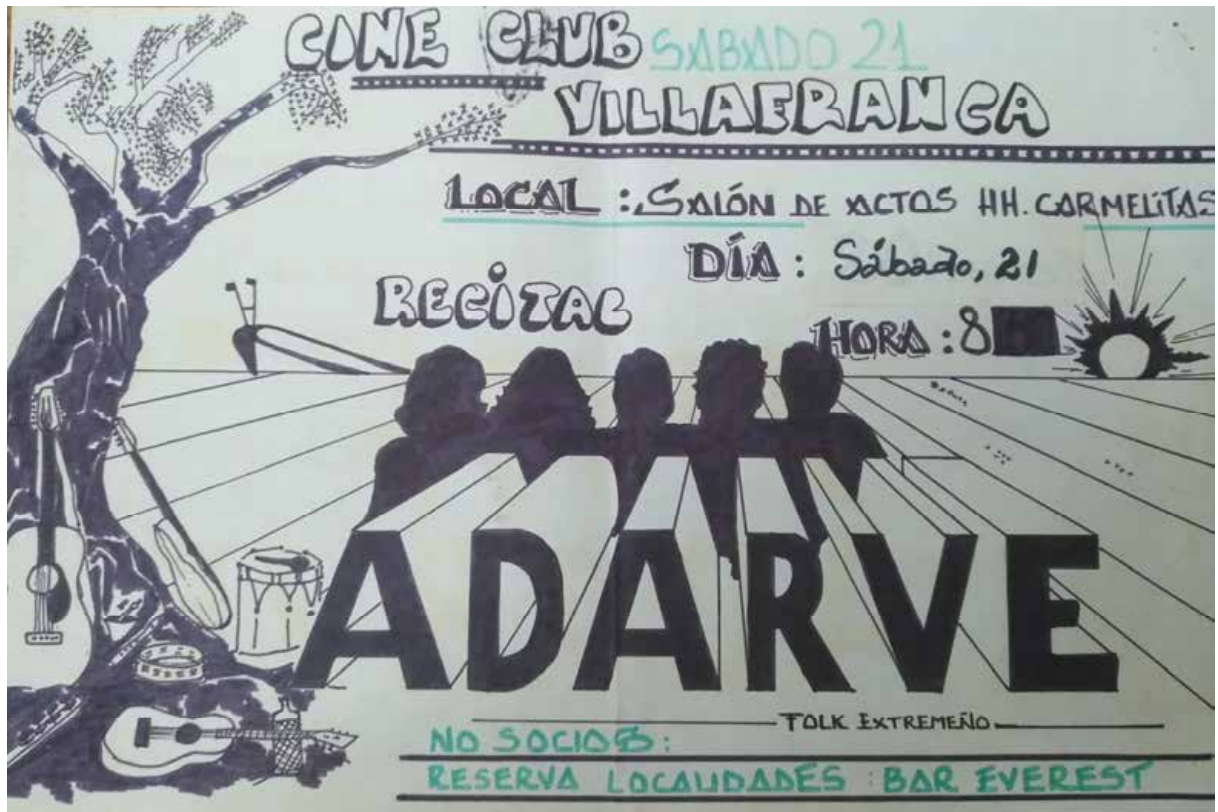 CINE CLUB SABADO 21
VILLAFRANCA
LOCAL : SALÓN DE ACTOS HH. CARMELITAS
DÍA : Sábado, 21
RECITAL
HORA : 8
ADARVE
FOLK EXTREMEÑO
NO SOCIOS :
RESERVA LOCALIDADES : BAR EVEREST